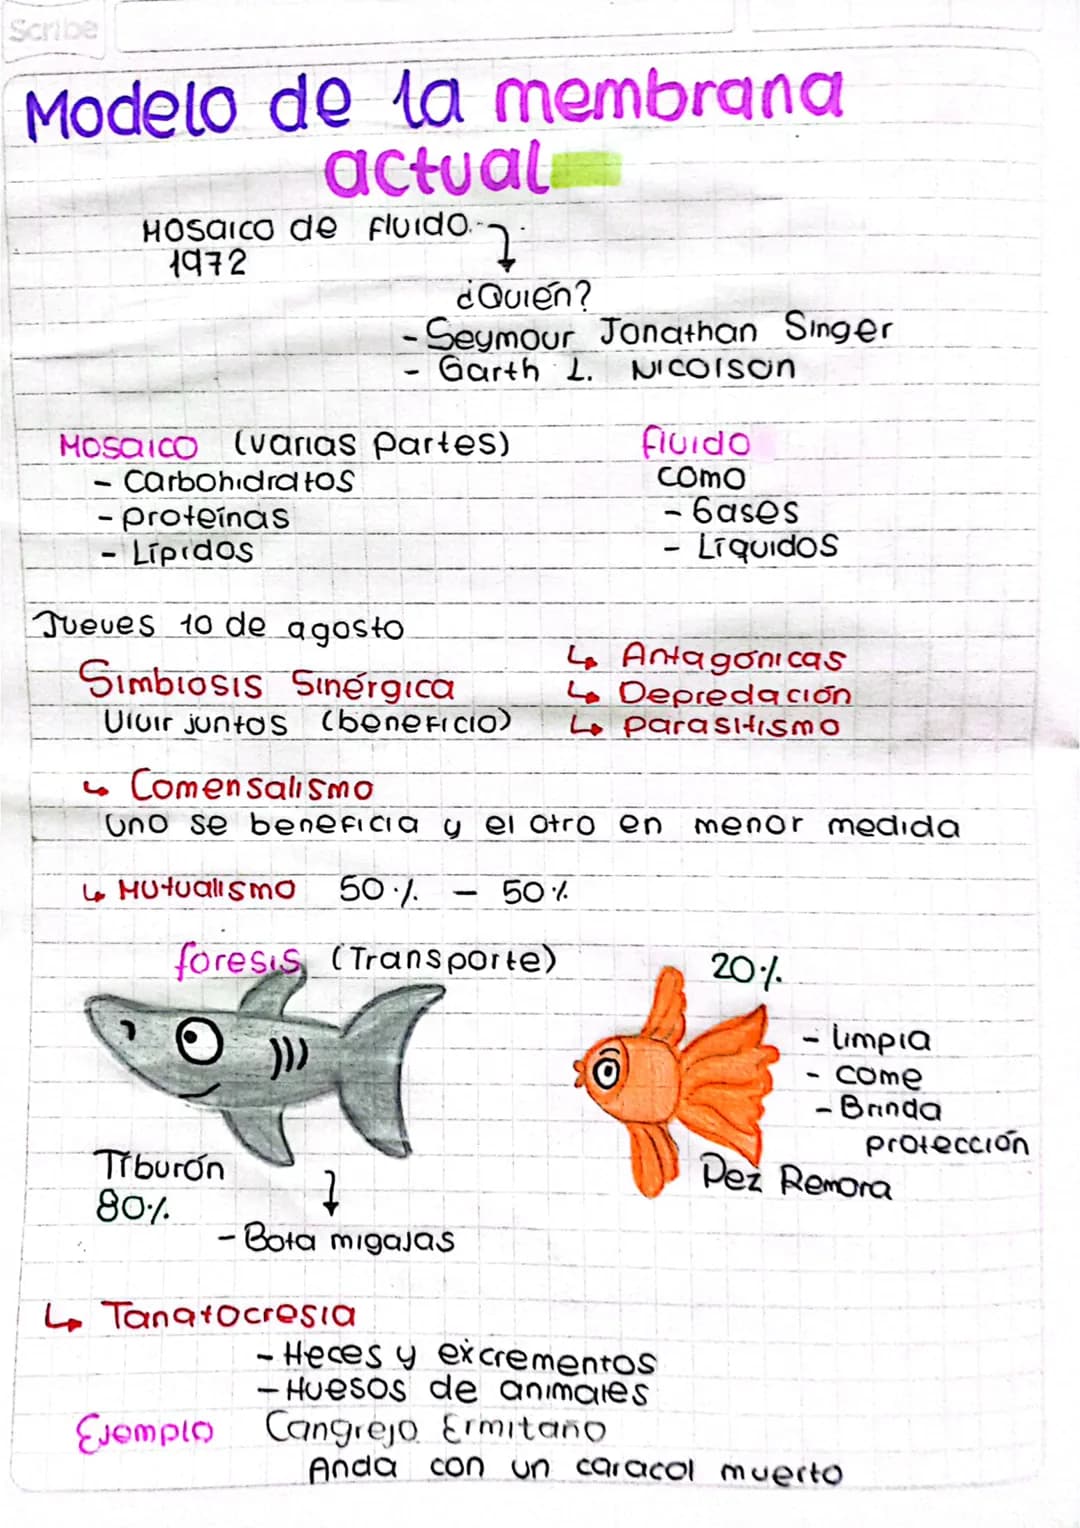 Scribe
Modelo de la membrana
actual
Mosaico de fluido
1972
¿Quién?
- Seymour Jonathan Singer
- Garth L. Nicolson
Mosaico (varias partes)
- Carbohidratos
- proteínas
- Lípidos
fluido
como
- Gases
- Líquidos
Jueves 10 de agosto
Simbiosis Sinérgica
Vivir juntos (beneficio)
↳ Antagónicas
↳ Depredación
↳ parasitismo
↳ Comensalismo
uno se beneficia y el otro en menor medida
↳ Mutualismo 50% - 50%
foresis (Transporte)
Tiburón
80%
- Bota migajas
20%
- limpia
- come
- Brinda
protección
Pez Remora
↳ Tanatocresia
- Heces y excrementos
- Huesos de animales
Ejemplo Cangrejo Ermitaño
Anda con un caracol muerto